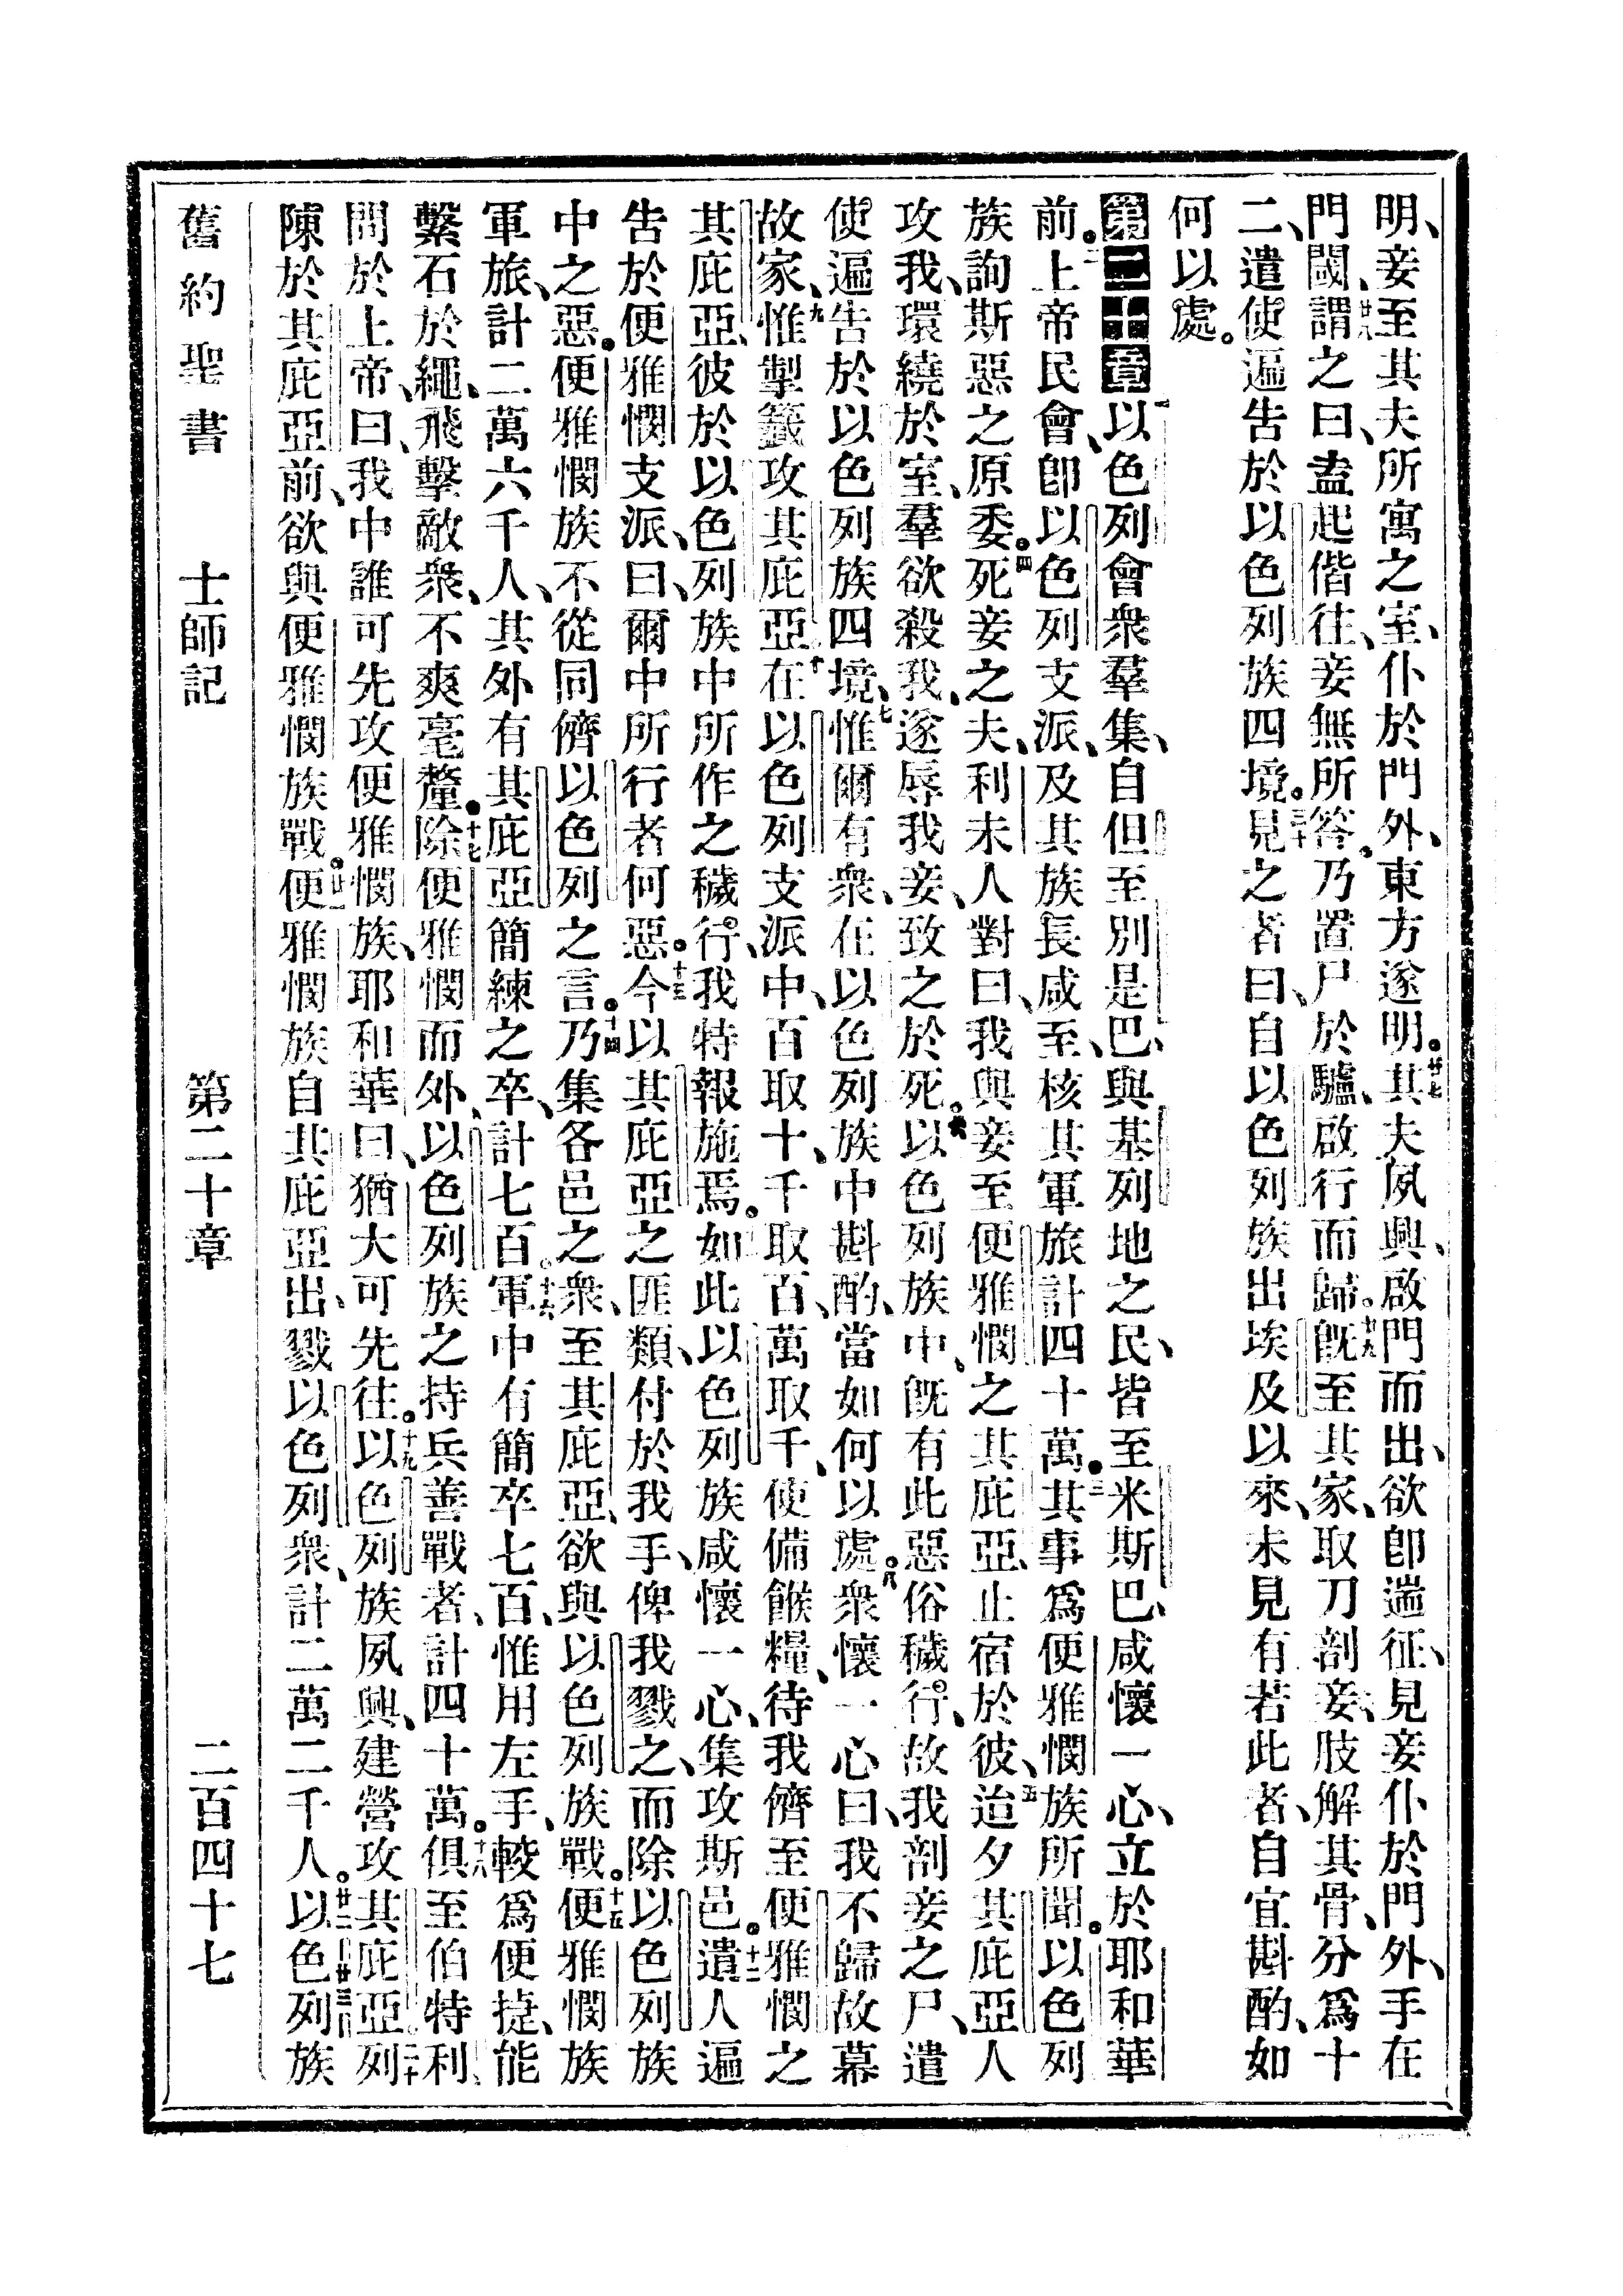 明、妾至其夫所寓之室、仆於門外、東方遂明。廿七其夫夙興、啟門而出、欲卽遄征、見妾仆於門外、手在
門閾、廿八謂之曰、盍起偕往、妾無所答。乃置尸於驢、啟行而歸。廿九旣至其家、取刀剖妾、肢解其骨、分爲十
二、遣使遍告於以色列族四境。三十見之者曰、自以色列族出埃及以來、未見有若此者、自宜斟酌、如
何以處。
第二十章一以色列會衆羣集、自但至別是巴、與基列地之民、皆至米斯巴、咸懷一心、立於耶和華
前。二上帝民會、卽以色列支派、及其族長咸至、核其軍旅計四十萬。三其事爲便雅憫族所聞。以色列
族詢斯惡之原委。四死妾之夫、利未人對曰、我與妾至便雅憫之其庇亞、止宿於彼、五迨夕其庇亞人
攻我、環繞於室、羣欲殺我、遂辱我妾、致之於死。六以色列族中、旣有此惡俗穢行、故我剖妾之尸、遣
使遍告於以色列族四境、七惟爾有衆、在以色列族中斟酌、當如何以處。八衆懷一心曰、我不歸故幕
故家、九惟掣籤攻其庇亞、十在以色列支派中、百取十、千取百、萬取千、使備餱糧、待我儕至便雅憫之
其庇亞、彼於以色列族中所作之穢行、我特報施焉。十一如此以色列族咸懷一心、集攻斯邑。十二遣人遍
告於便雅憫支派、曰、爾中所行者何惡。十三今以其庇亞之匪類、付於我手、俾我戮之、而除以色列族
中之惡。便雅憫族不從同儕以色列之言。十四乃集各邑之衆、至其庇亞、欲與以色列族戰。十五便雅憫族
軍旅、計二萬六千人、其外有其庇亞簡練之卒、計七百。十六軍中有簡卒七百、惟用左手、較爲便捷、能
繫石於繩、飛擊敵衆、不爽毫釐。十七除便雅憫而外、以色列族之持兵善戰者、計四十萬。十八俱至伯特利
問於上帝、曰、我中誰可先攻便雅憫族、耶和華曰、猶大可先往。十九以色列族夙興、建營攻其庇亞。二十列
陳於其庇亞前、欲與便雅憫族戰。廿一便雅憫族自其庇亞出、戮以色列衆、計二萬二千人。廿二廿三以色列族
舊約聖書 士師記 第二十章 二百四十七